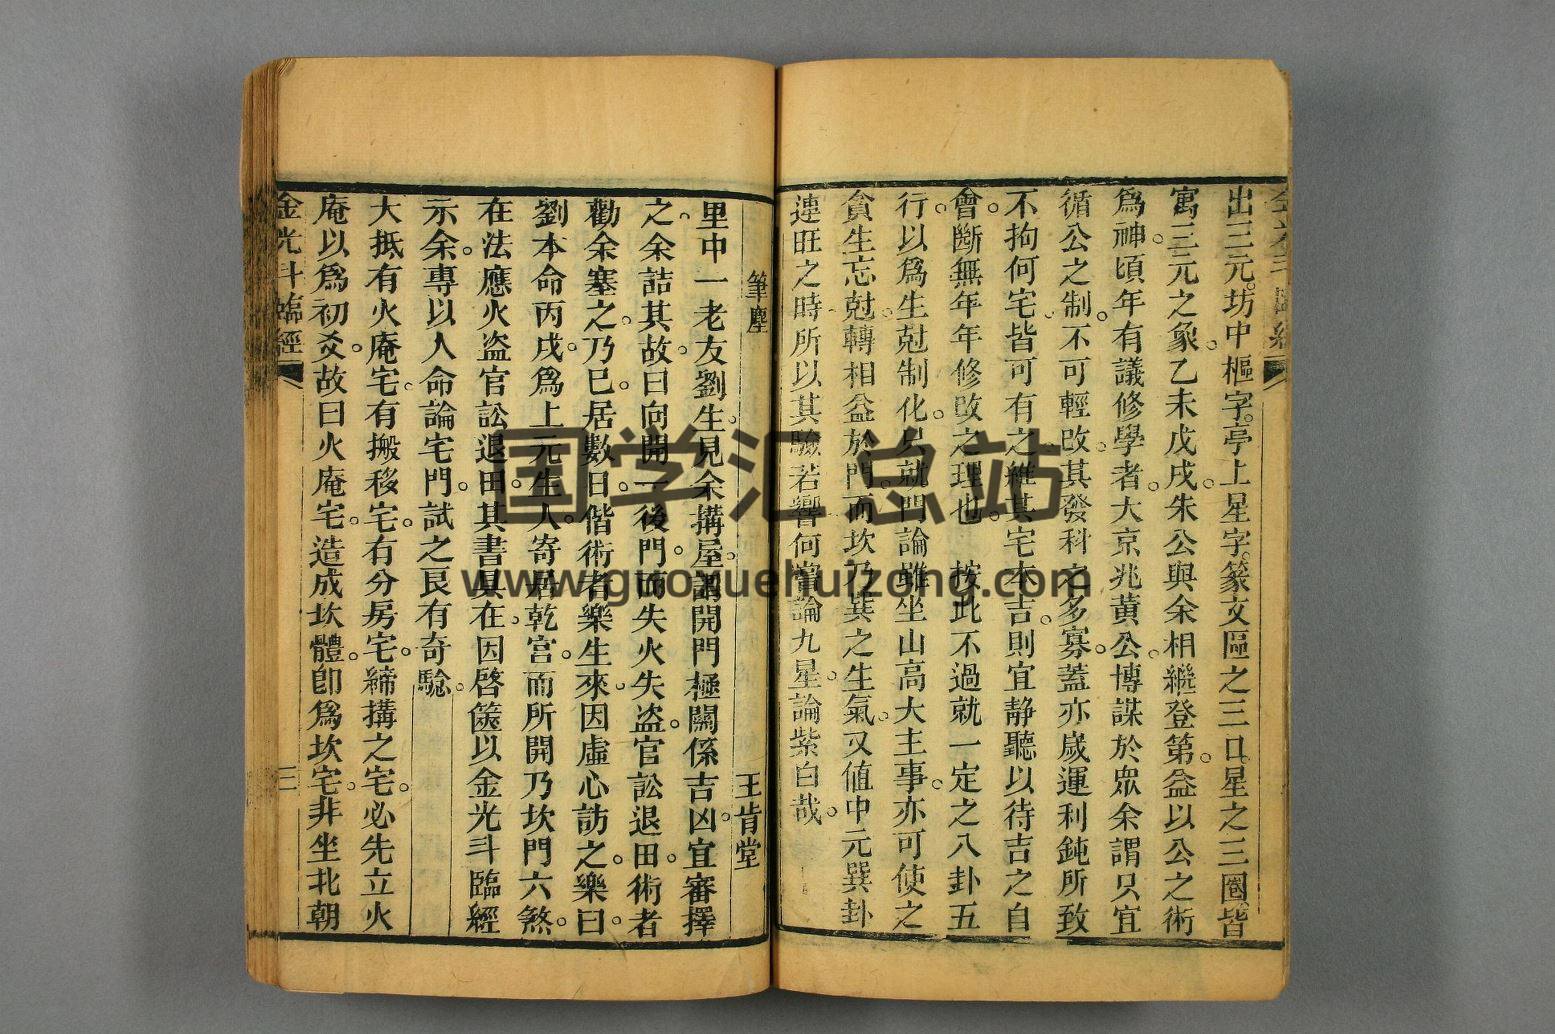 出三元坊中樞字亭上星字篆文區之三口星之三圈皆
寓三元之象乙未戊戌朱公與余相繼登第益以公之術
爲神頃年有議修學者大京兆黃公博謀於眾余謂只宜
循公之制不可輕改其發科之多寡蓋亦歲運利鈍所致
不拘何宅皆可有之維其宅本吉則宜静聽以待吉之自
會斷無年年修改之理也按此不過就一定之八卦五
行以爲生尅制化只就門論雖坐山高大主事亦可使之
貪生忘尅轉相益於門而坎乃巽之生氣又值中元巽卦
連旺之時所以其驗若響何嘗論九星論紫白哉
筆塵 王肯堂
里中一老友劉生見余搆屋謂開門極關係吉凶宜審擇
之余詰其故曰向開一後門而失火失盜官訟退田術者
勸余塞之乃已居數日偕術者樂生來因虛心訪之樂曰
劉本命丙戌爲上元生人寄居乾宮而所開乃坎門六煞
在法應火盜官訟退田其書具在因啓篋以金光斗臨經
示余專以人命論宅門試之艮有奇驗
大抵有火庵宅有搬移宅有分房宅締搆之宅必先立火
庵以爲初爻故曰火庵宅造成坎體卽爲坎宅非坐北朝
金光斗臨經 三
国学汇总站
www.guoxuehuizong.com